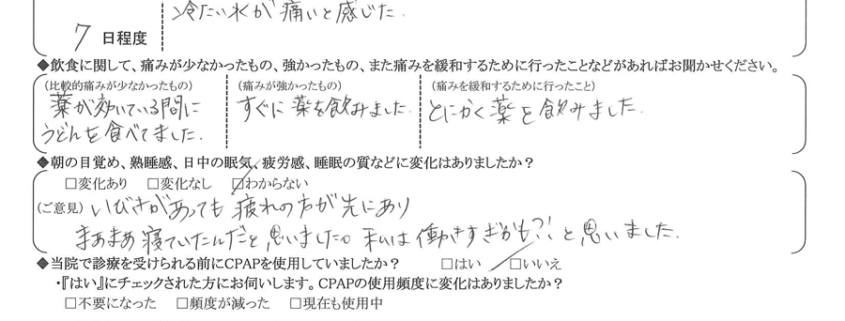 冷たい水が痛いと感じた.
7 日程度
◆飲食に関して、痛みが少なかったもの、強かったもの、また痛みを緩和するために行ったことなどがあればお聞かせください。
(比較的痛みが少なかったもの) (痛みが強かったもの) (痛みを緩和するために行ったこと)
薬が効いている間に すぐに薬を飲みました. とにかく薬を飲みました.
うどんを食べてました.
◆朝の目覚め、熟睡感、日中の眠気、疲労感、睡眠の質などに変化はありましたか？
□変化あり □変化なし □わからない
(ご意見) いびきがあっても疲れの方が先にあり
まぁまぁ寝ていたんだと思いました。私は働きすぎかも?!と思いました.
◆当院で診療を受けられる前にCPAPを使用していましたか？ □はい □いいえ
・『はい』にチェックされた方にお伺いします。CPAPの使用頻度に変化はありましたか？
□不要になった □頻度が減った □現在も使用中